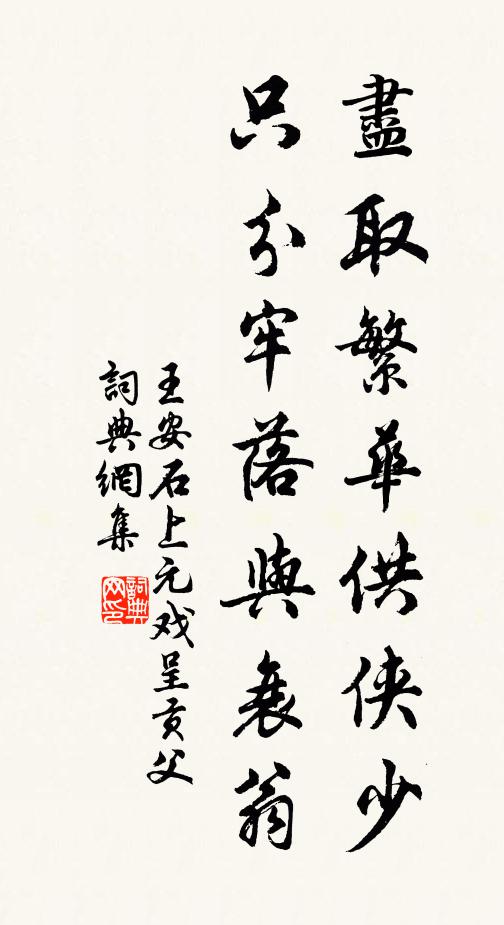 盡取繁華供俠少
只分牢落與衰翁
王安石上元戏呈贡父
詞典網集
詞典网印